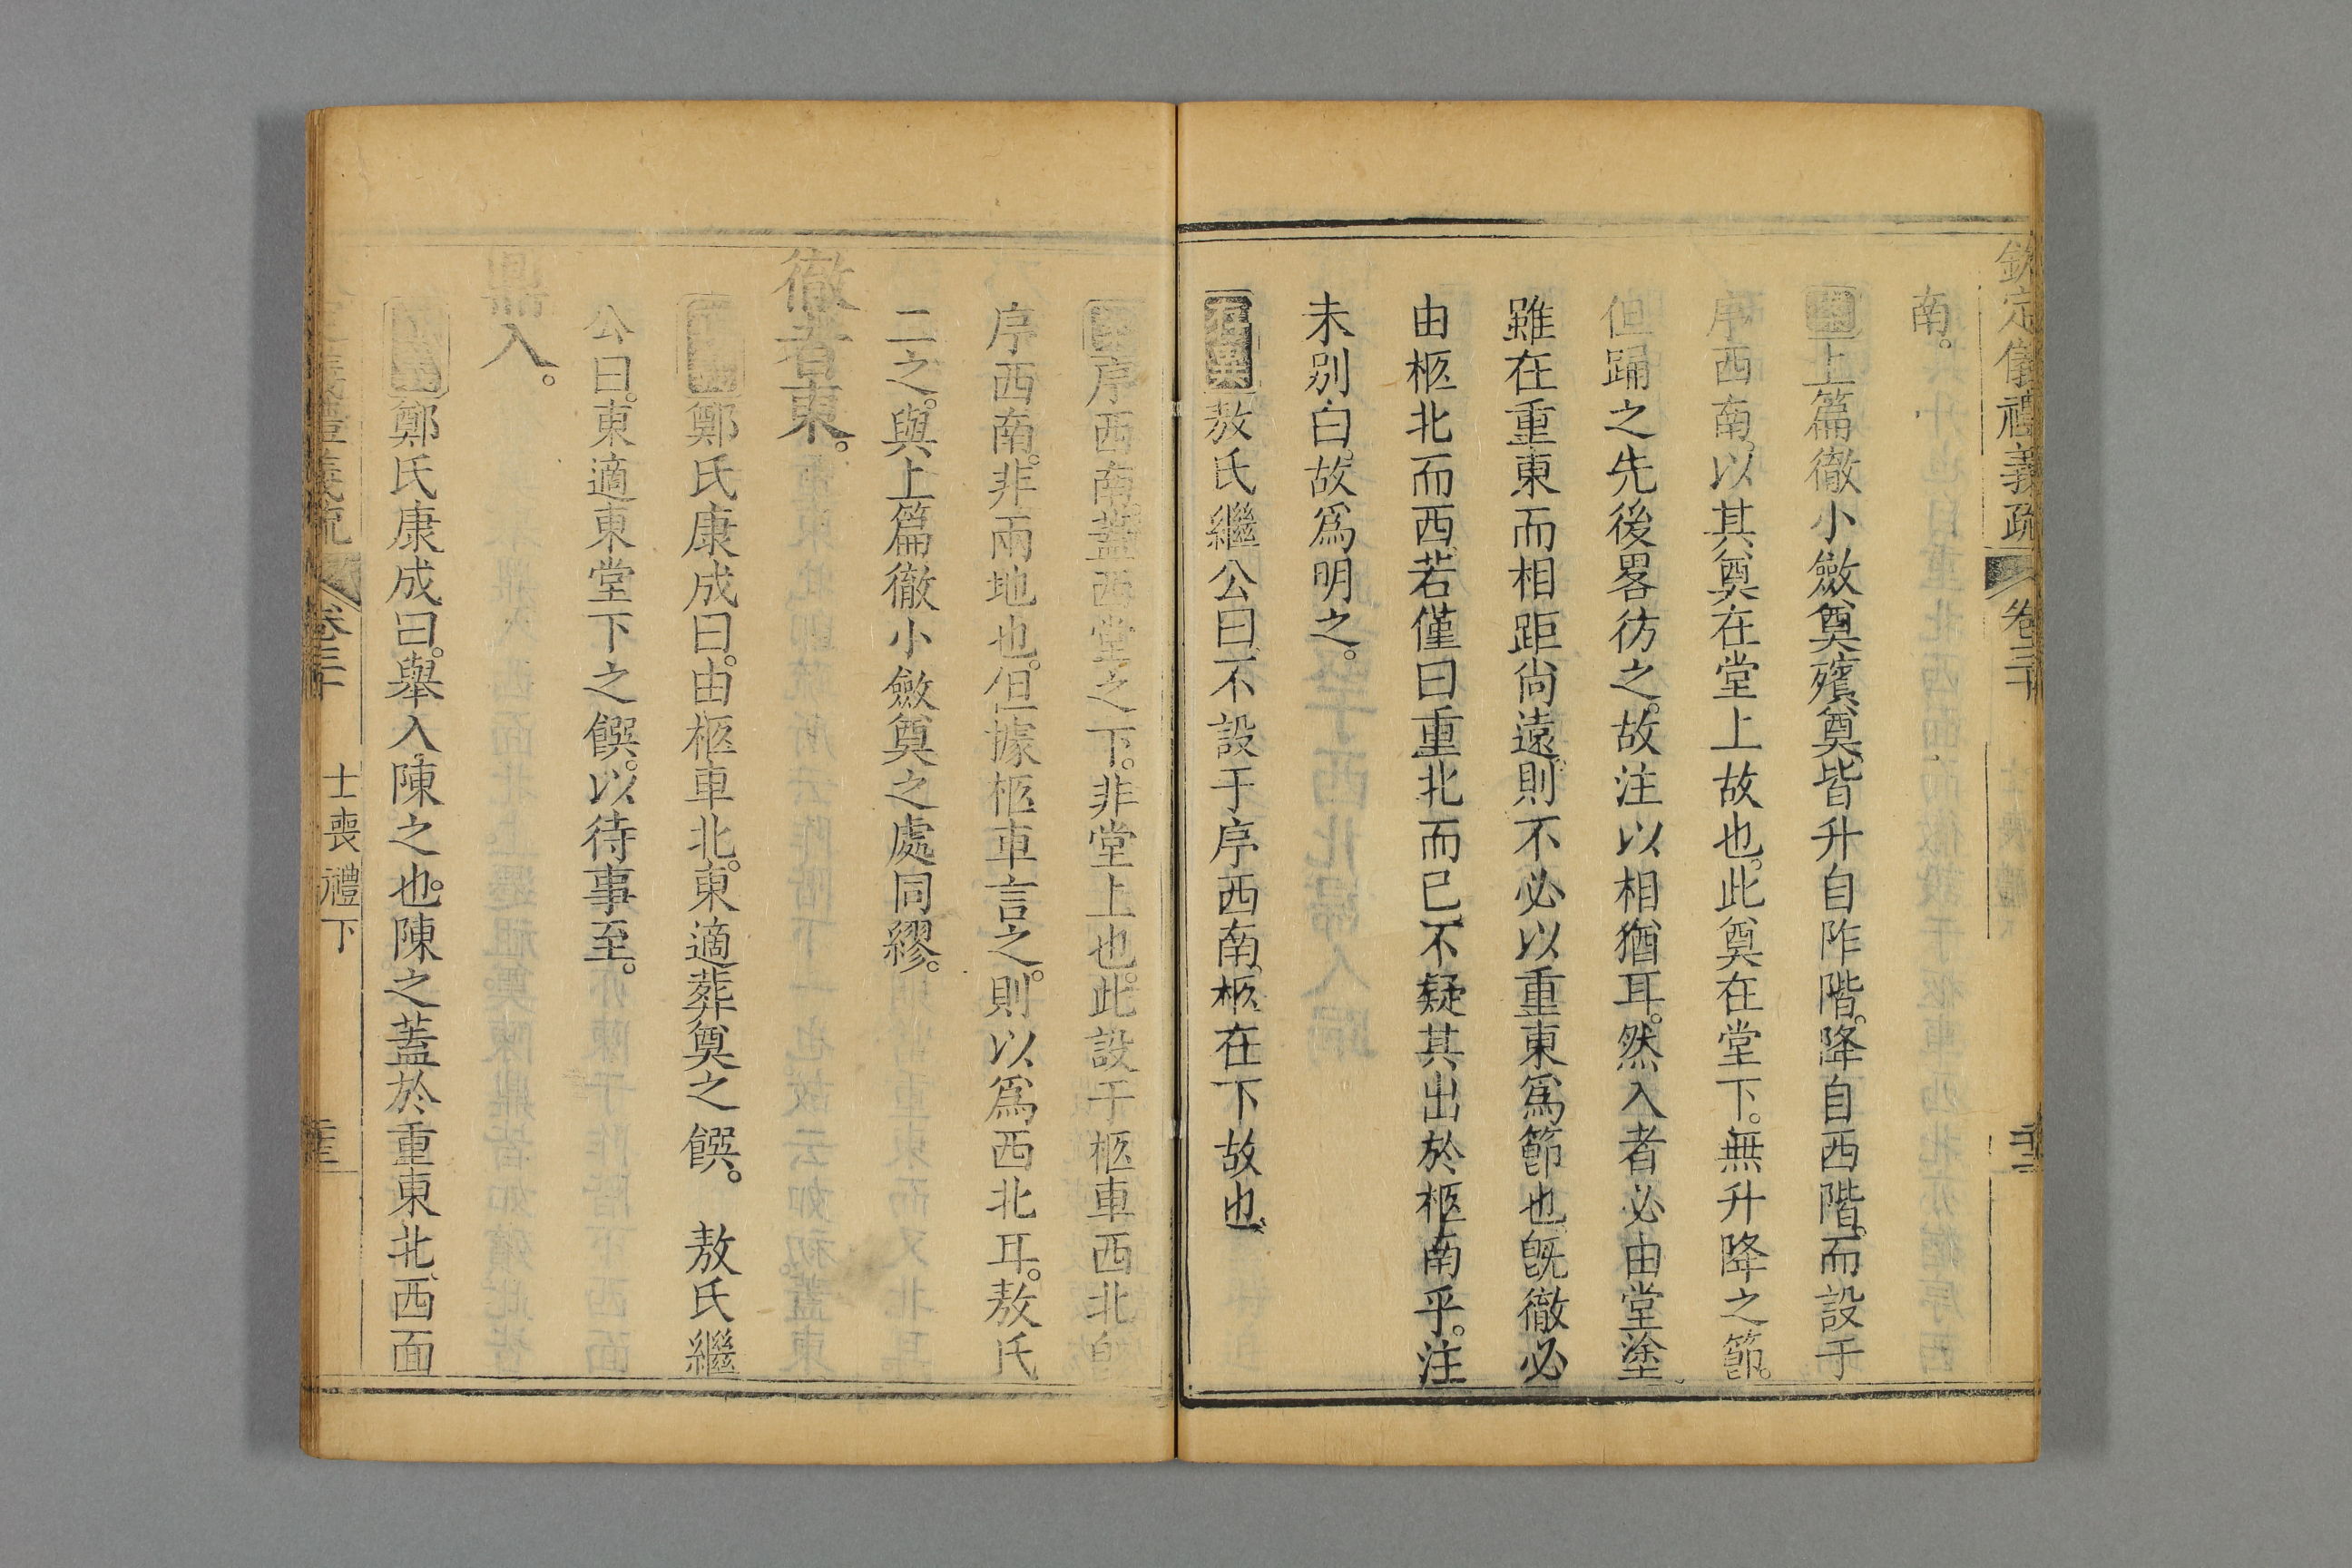 欽定儀禮義疏 卷三十
南。
案上篇徹小斂奠殯奠皆升自阼階。降自西階。而設于
序西南。以其奠在堂上故也。此奠在堂下。無升降之節。
但踊之先後畧彷之。故注以相猶耳。然入者必由堂塗
雖在重東而相距尙遠。則不必以重東爲節也。旣徹必
由柩北而西。若僅曰重北而已。不疑其出於柩南乎。注
未別白。故爲明之。
存異敖氏繼公曰。不設于序西南。柩在下故也。
案序西南。蓋西堂之下。非堂上也。此設于柩車西北自
序西南。非兩地也。但據柩車言之。則以爲西北耳。敖氏
二之。與上篇徹小斂奠之處同繆。
徹者東。
鄭氏康成曰。由柩車北。東適葬奠之饌。 敖氏繼
公曰。東適東堂下之饌。以待事至。
鼎入。
鄭氏康成曰。舉入陳之也。陳之蓋於重東北。西面
定儀禮義疏 卷三十 士喪禮下